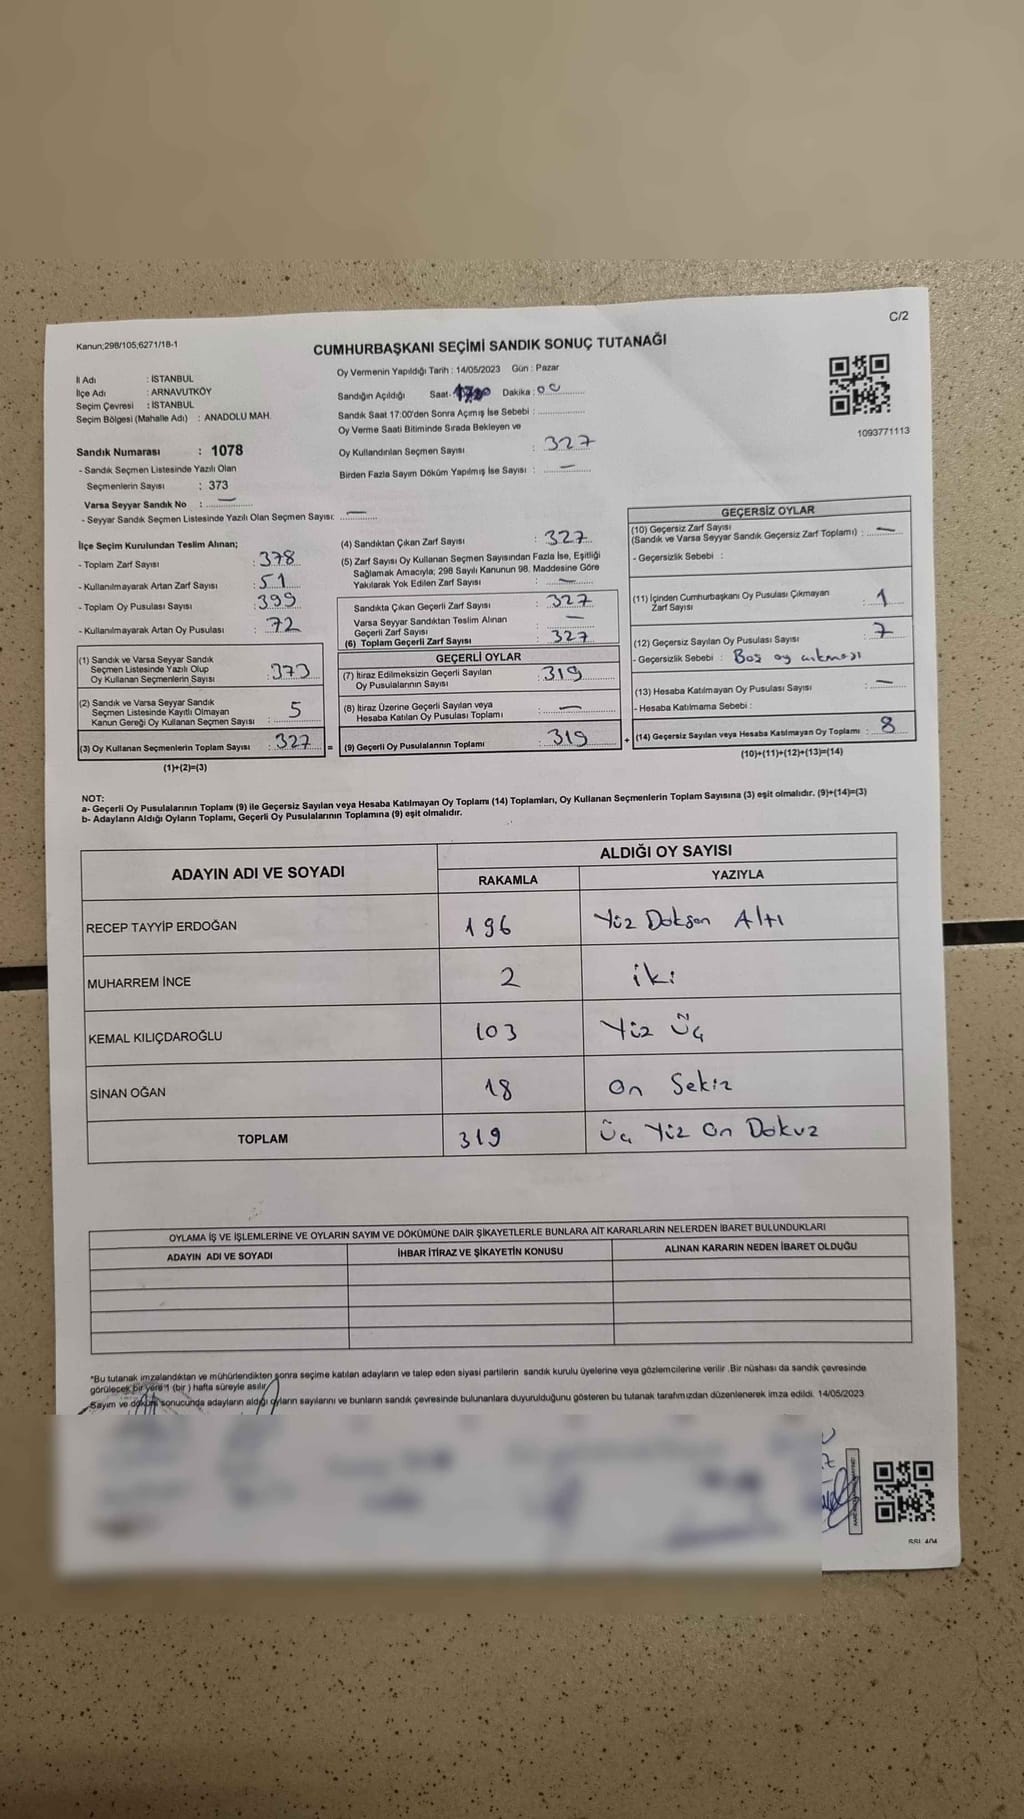 C/2
Kanun;298/105;6271/18-1
CUMHURBAŞKANI SEÇİMİ SANDIK SONUÇ TUTANAĞI
İl Adı : İSTANBUL
İlçe Adı : ARNAVUTKÖY
Seçim Çevresi : İSTANBUL
Seçim Bölgesi (Mahalle Adı) : ANADOLU MAH.
Sandık Numarası : 1078
- Sandık Seçmen Listesinde Yazılı Olan
Seçmenlerin Sayısı : 373
Varsa Seyyar Sandık No : —
- Seyyar Sandık Seçmen Listesinde Yazılı Olan Seçmen Sayısı: —
Oy Vermenin Yapıldığı Tarih : 14/05/2023 Gün : Pazar
Sandığın Açıldığı Saat: Dakika : 00
Sandık Saat 17:00'den Sonra Açımış İse Sebebi :
Oy Verme Saati Bitiminde Sırada Bekleyen ve
Oy Kullandırılan Seçmen Sayısı : 327
Birden Fazla Sayım Döküm Yapılmış İse Sayısı : —
1093771113
İlçe Seçim Kurulundan Teslim Alınan;
- Toplam Zarf Sayısı : 378
- Kullanılmayarak Artan Zarf Sayısı : 51
- Toplam Oy Pusulası Sayısı : 399
- Kullanılmayarak Artan Oy Pusulası : 72
(1) Sandık ve Varsa Seyyar Sandık
Seçmen Listesinde Yazılı Olup
Oy Kullanan Seçmenlerin Sayısı : 373
(2) Sandık ve Varsa Seyyar Sandık
Seçmen Listesinde Kayıtlı Olmayan
Kanun Gereği Oy Kullanan Seçmen Sayısı : 5
(3) Oy Kullanan Seçmenlerin Toplam Sayısı : 327 =
(1)+(2)=(3)
(4) Sandıktan Çıkan Zarf Sayısı : 327
(5) Zarf Sayısı Oy Kullanan Seçmen Sayısından Fazla İse, Eşitliği
Sağlamak Amacıyla; 298 Sayılı Kanunun 98. Maddesine Göre
Yakılarak Yok Edilen Zarf Sayısı : —
Sandıkta Çıkan Geçerli Zarf Sayısı : 327
Varsa Seyyar Sandıktan Teslim Alınan
Geçerli Zarf Sayısı : —
(6) Toplam Geçerli Zarf Sayısı : 327
GEÇERLİ OYLAR
(7) İtiraz Edilmeksizin Geçerli Sayılan
Oy Pusulalarının Sayısı : 319
(8) İtiraz Üzerine Geçerli Sayılan veya
Hesaba Katılan Oy Pusulası Toplamı : —
(9) Geçerli Oy Pusulalarının Toplamı : 319 +
GEÇERSİZ OYLAR
(10) Geçersiz Zarf Sayısı
(Sandık ve Varsa Seyyar Sandık Geçersiz Zarf Toplamı) : —
- Geçersizlik Sebebi :
(11) İçinden Cumhurbaşkanı Oy Pusulası Çıkmayan
Zarf Sayısı : 1
(12) Geçersiz Sayılan Oy Pusulası Sayısı : 7
- Geçersizlik Sebebi : Boş oy çıkması
(13) Hesaba Katılmayan Oy Pusulası Sayısı : —
- Hesaba Katılmama Sebebi :
(14) Geçersiz Sayılan veya Hesaba Katılmayan Oy Toplamı : 8
(10)+(11)+(12)+(13)=(14)
NOT:
a- Geçerli Oy Pusulalarının Toplamı (9) ile Geçersiz Sayılan veya Hesaba Katılmayan Oy Toplamı (14) Toplamları, Oy Kullanan Seçmenlerin Toplam Sayısına (3) eşit olmalıdır. (9)+(14)=(3)
b- Adayların Aldığı Oyların Toplamı, Geçerli Oy Pusulalarının Toplamına (9) eşit olmalıdır.
ADAYIN ADI VE SOYADI
ALDIĞI OY SAYISI
RAKAMLA YAZIYLA
RECEP TAYYİP ERDOĞAN 196 Yüz Doksan Altı
MUHARREM İNCE 2 iki
KEMAL KILIÇDAROĞLU 103 Yüz Üç
SİNAN OĞAN 18 On Sekiz
TOPLAM 319 Üç Yüz On Dokuz
OYLAMA İŞ VE İŞLEMLERİNE VE OYLARIN SAYIM VE DÖKÜMÜNE DAİR ŞİKAYETLERLE BUNLARA AİT KARARLARIN NELERDEN İBARET BULUNDUKLARI
ADAYIN ADI VE SOYADI İHBAR İTİRAZ VE ŞİKAYETİN KONUSU ALINAN KARARIN NEDEN İBARET OLDUĞU
*Bu tutanak imzalandıktan ve mühürlendikten sonra seçime katılan adayların ve talep eden siyasi partilerin sandık kurulu üyelerine veya gözlemcilerine verilir .Bir nüshası da sandık çevresinde
görülecek bir yere 1 (bir ) hafta süreyle asılır.
Sayım ve döküm sonucunda adayların aldığı oyların sayılarını ve bunların sandık çevresinde bulunanlara duyurulduğunu gösteren bu tutanak tarafımızdan düzenlenerek imza edildi. 14/05/2023